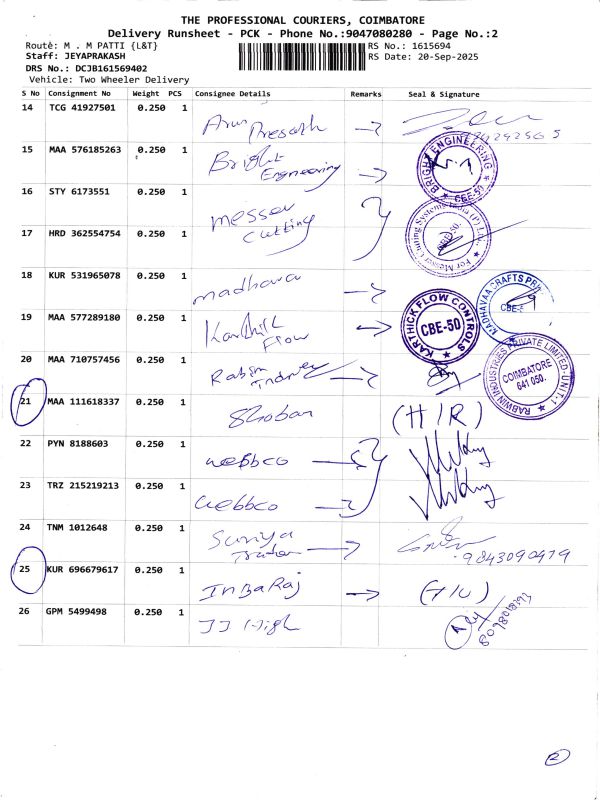 THE PROFESSIONAL COURIERS, COIMBATORE
Delivery Runsheet - PCK - Phone No.:9047080280 - Page No.:2
Route: M . M PATTI {L&T}
RS No.: 1615694
Staff: JEYAPRAKASH
RS Date: 20-Sep-2025
DRS No.: DCJB161569402
Vehicle: Two Wheeler Delivery
S No Consignment No Weight PCS Consignee Details Remarks Seal & Signature
14 TCG 41927501 0.250 1
15 MAA 576185263 0.250 1 Bright Engineering
BRIGHT ENGINEERING CBE-50
16 STY 6173551 0.250 1 Messer Cutting
For Messer Cutting Systems India (P) Ltd.,
17 HRD 362554754 0.250 1
18 KUR 531965078 0.250 1 madhava
MADHAVAA CRAFTS
19 MAA 577289180 0.250 1 Karthik Flow
KARTHICK FLOW CONTROLS CBE-50
20 MAA 710757456 0.250 1
RABWIN INDUSTRIES PRIVATE LIMITED-UNIT-1 COIMBATORE 641 050.
21 MAA 111618337 0.250 1 Shoban (H/R)
22 PYN 8188603 0.250 1 webbco
23 TRZ 215219213 0.250 1 webbco
24 TNM 1012648 0.250 1 Suriya
9843090479
25 KUR 696679617 0.250 1 InBaRaj
26 GPM 5499498 0.250 1 JJ High
2